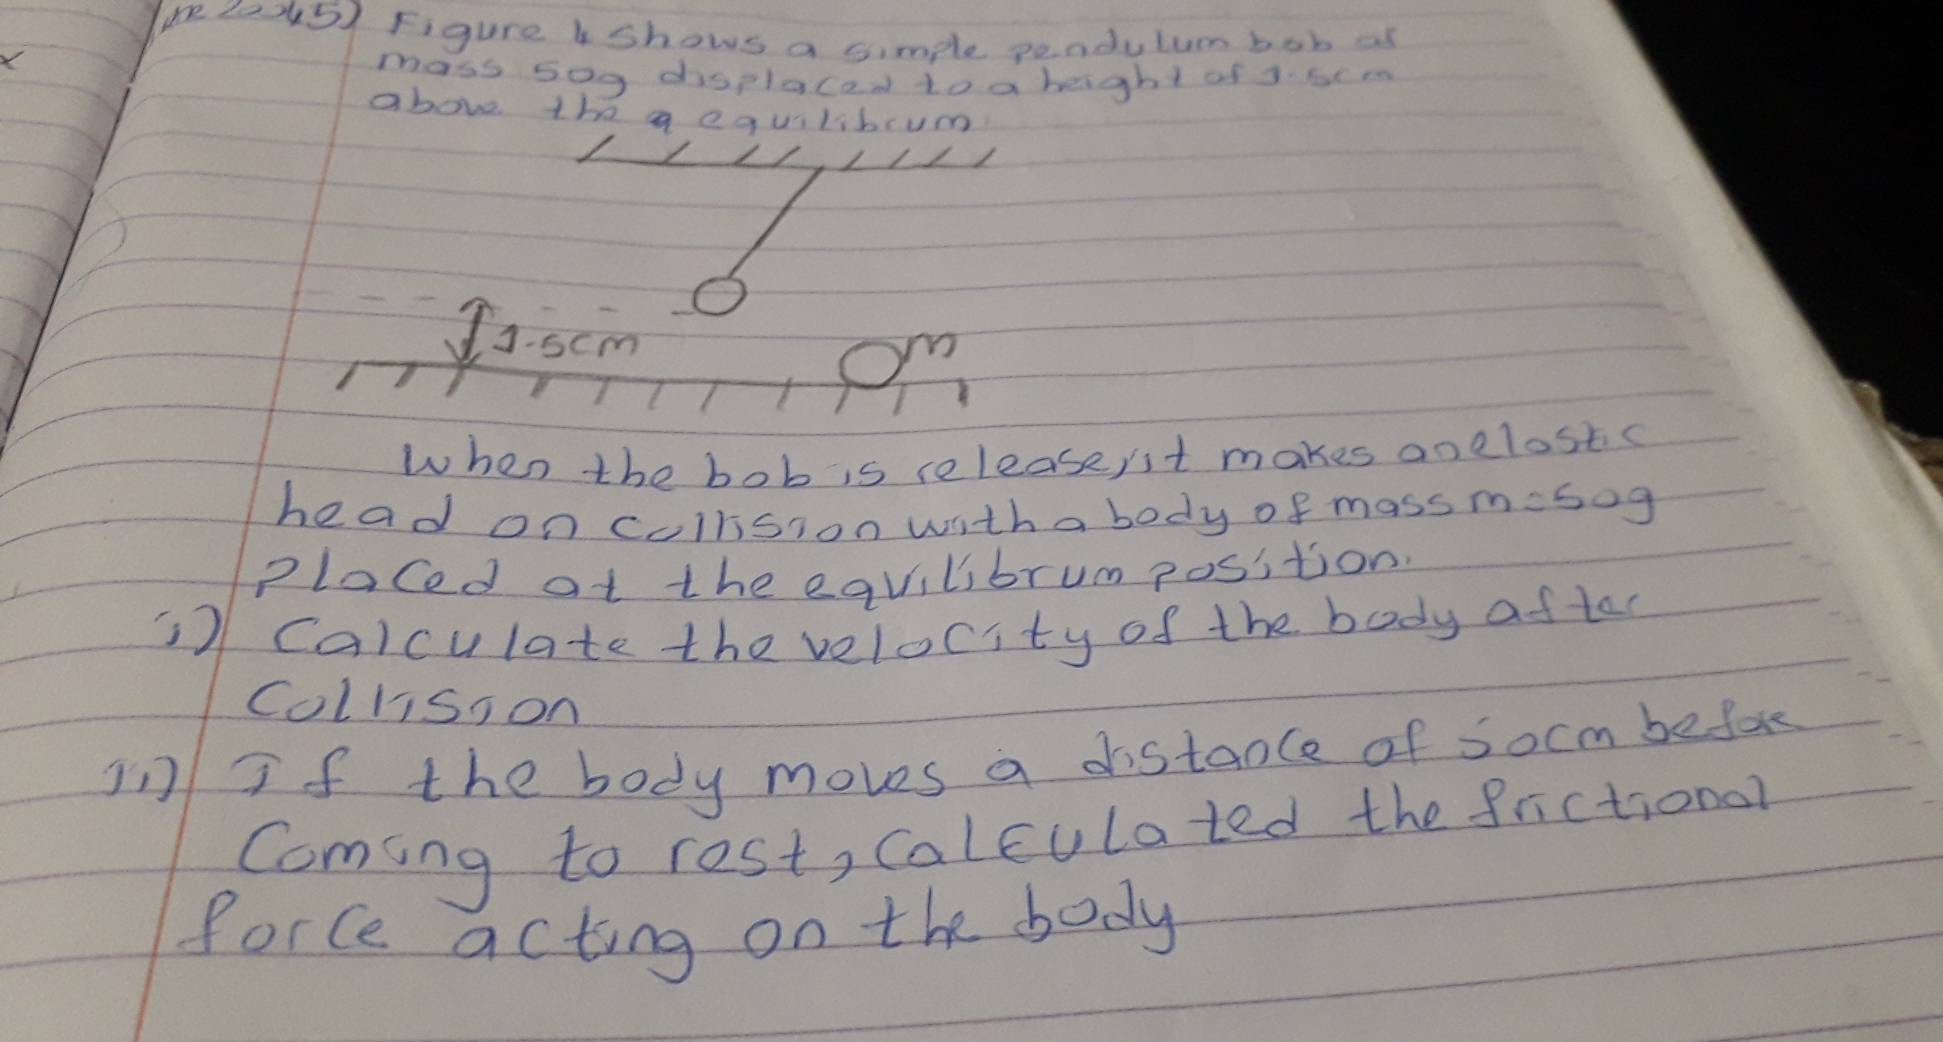 Figure 4 shows a simple pendulum bob of
mass 50g displaced to a height of 1.5cm
above the equilibrum
1.5cm
m
When the bob is release, it makes an elastic
head on collission with a body of mass m=50g
placed at the equilibrum position.
i) Calculate the velocity of the body after
Collission
ii) If the body moves a distance of 50cm before
Coming to rest, calculated the frictional
force acting on the body